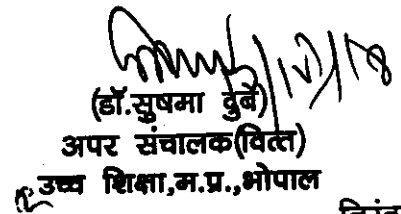 (डॉ.सुषमा दुबे)
अपर संचालक(वित्त)
उच्च शिक्षा,म.प्र.,भोपाल